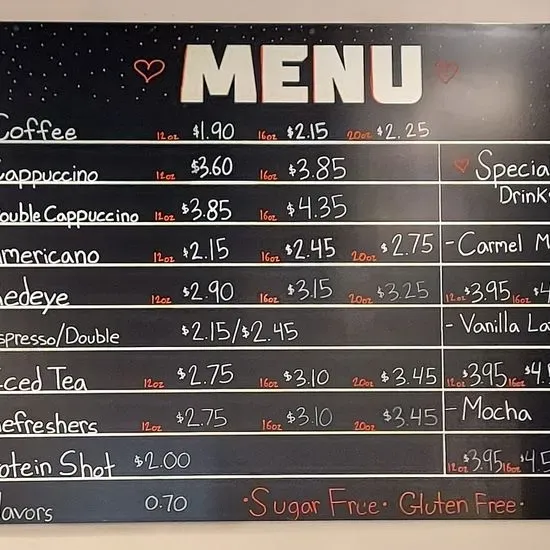 MENU
Coffee 12oz $1.90 16oz $2.15 20oz $2.25
Cappuccino 12oz $3.60 16oz $3.85
Double Cappuccino 12oz $3.85 16oz $4.35
Americano 12oz $2.15 16oz $2.45 20oz $2.75
Redeye 12oz $2.90 16oz $3.15 20oz $3.25
Espresso/Double $2.15/$2.45
Iced Tea 12oz $2.75 16oz $3.10 20oz $3.45
Refreshers 12oz $2.75 16oz $3.10 20oz $3.45
otein Shot $2.00
lavors 0.70
Specia
Drink
-Carmel M
12oz $3.95 16oz $4
-Vanilla La
12oz $3.95 16oz $4.
-Mocha
12oz $3.95 16oz $4.5
·Sugar Free· Gluten Free·